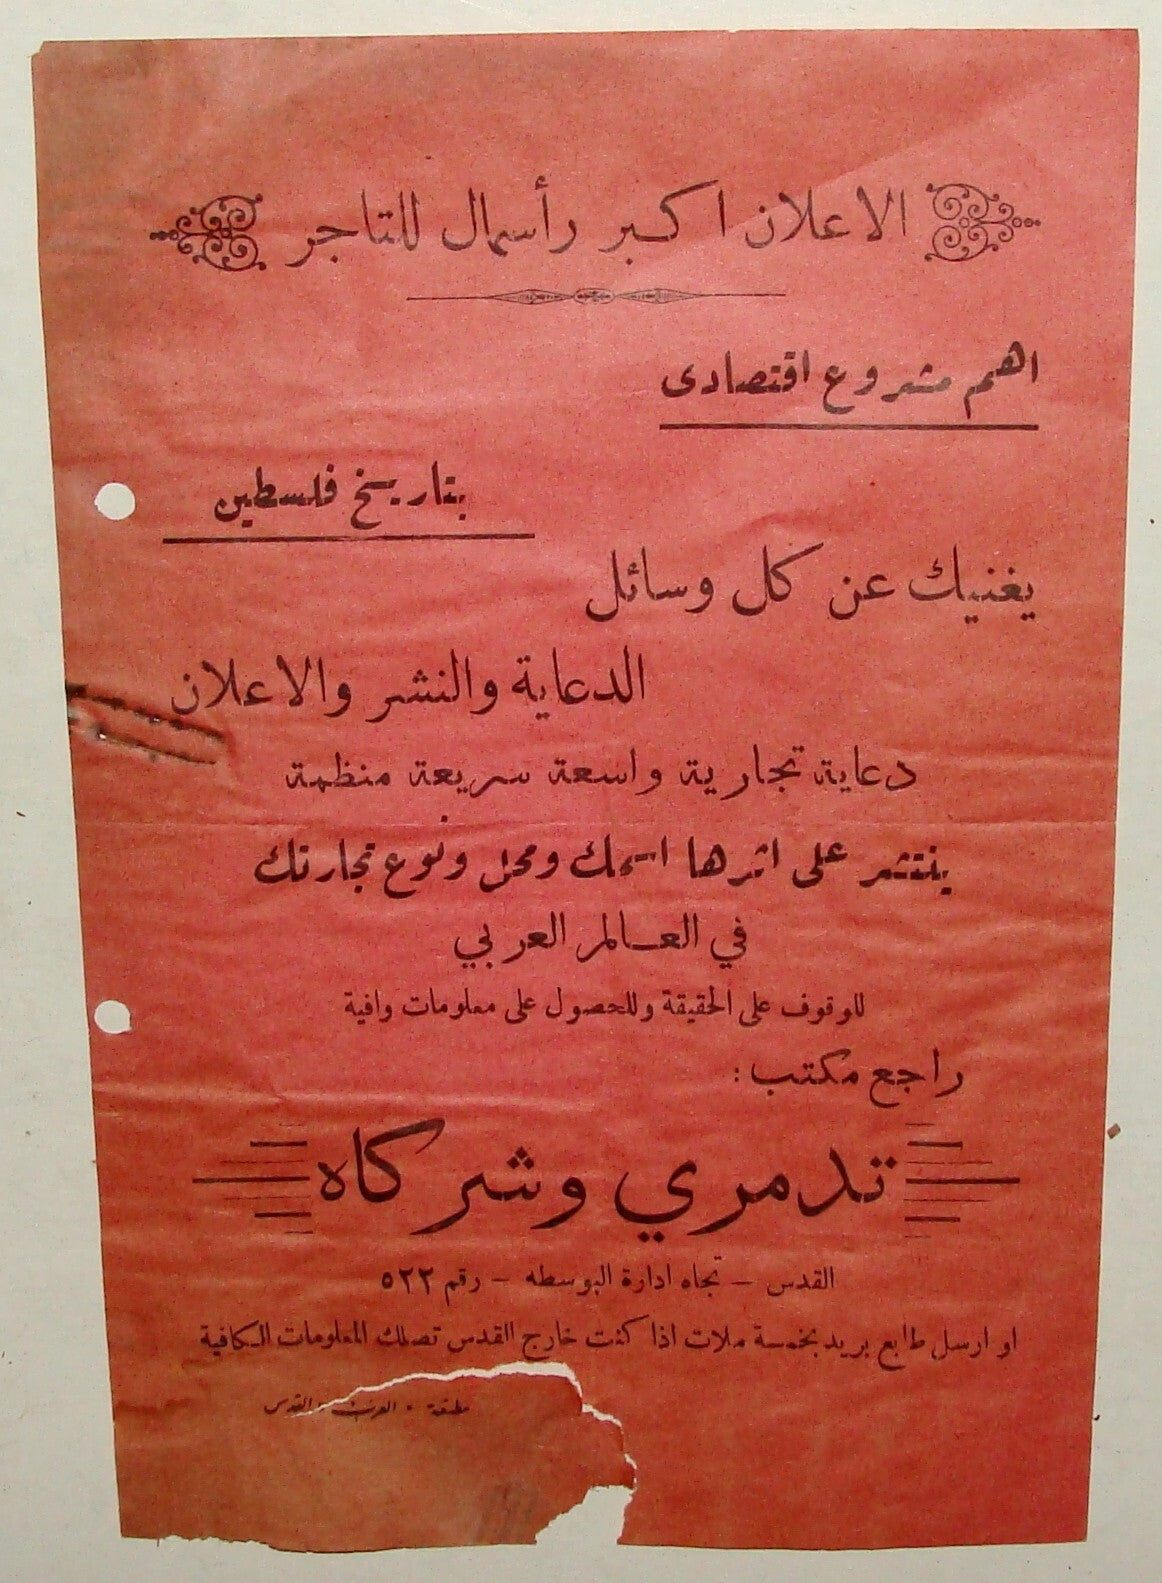 الاعلان اكبر رأسمال للتاجر
اهم مشروع اقتصادى
بتاريخ فلسطين
يغنيك عن كل وسائل
الدعاية والنشر والاعلان
دعاية تجارية واسعة سريعة منظمة
ينتشر على اثرها اسمك ومحل ونوع تجارتك
في العالم العربي
للوقوف على الحقيقة وللحصول على معلومات وافية
راجع مكتب :
تدمري وشركاه
القدس – تجاه ادارة البوسطه – رقم ٥٢٢
او ارسل طابع بريد بخمسة ملات اذا كنت خارج القدس تصلك المعلومات الكافية
مطبعة العرب القدس